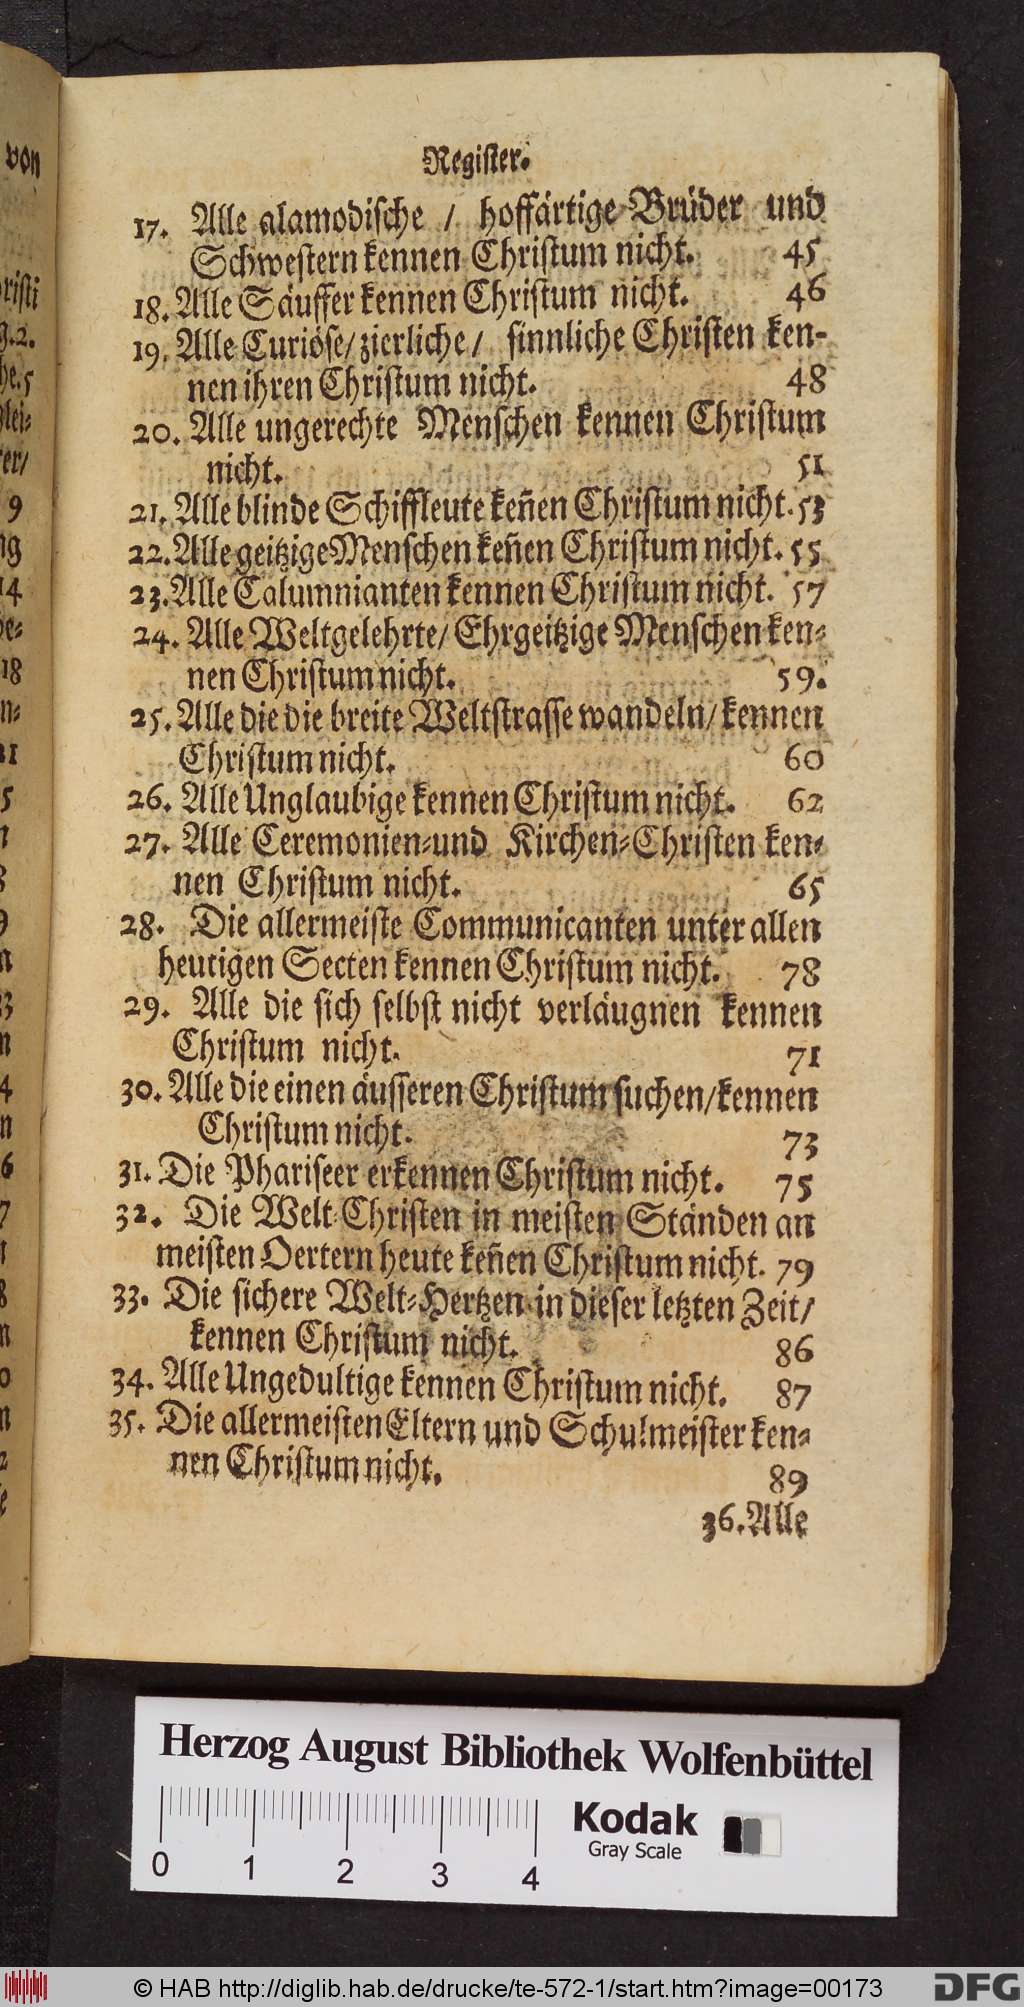 von
risti
g.2.
he.5
lei-
er/
9
ng
14
be-
18
n-
21
5
Register.
17. Alle alamodische / hoffärtige Brüder und
Schwestern kennen Christum nicht. 45
18. Alle Säuffer kennen Christum nicht. 46
19. Alle Curiöse/ zierliche/ sinnliche Christen ken-
nen ihren Christum nicht. 48
20. Alle ungerechte Menschen kennen Christum
nicht. 51
21. Alle blinde Schiffleute keñen Christum nicht. 53
22. Alle geitzige Menschen keñen Christum nicht. 55
23. Alle Calumnianten kennen Christum nicht. 57
24. Alle Weltgelehrte/ Ehrgeitzige Menschen ken-
nen Christum nicht. 59.
25. Alle die die breite Weltstrasse wandeln/ kennen
Christum nicht. 60
26. Alle Unglaubige kennen Christum nicht. 62
27. Alle Ceremonien-und Kirchen-Christen ken-
nen Christum nicht. 65
28. Die allermeiste Communicanten unter allen
heutigen Secten kennen Christum nicht. 78
29. Alle die sich selbst nicht verläugnen kennen
Christum nicht. 71
30. Alle die einen äusseren Christum suchen/ kennen
Christum nicht. 73
31. Die Phariseer erkennen Christum nicht. 75
32. Die Welt-Christen in meisten Ständen an
meisten Oertern heute keñen Christum nicht. 79
33. Die sichere Welt-Hertzen in dieser letzten Zeit/
kennen Christum nicht. 86
34. Alle Ungedultige kennen Christum nicht. 87
35. Die allermeisten Eltern und Schulmeister ken-
nen Christum nicht. 89
36. Alle
Herzog August Bibliothek Wolfenbüttel
Kodak
Gray Scale
0 1 2 3 4
© HAB http://diglib.hab.de/drucke/te-572-1/start.htm?image=00173
DFG